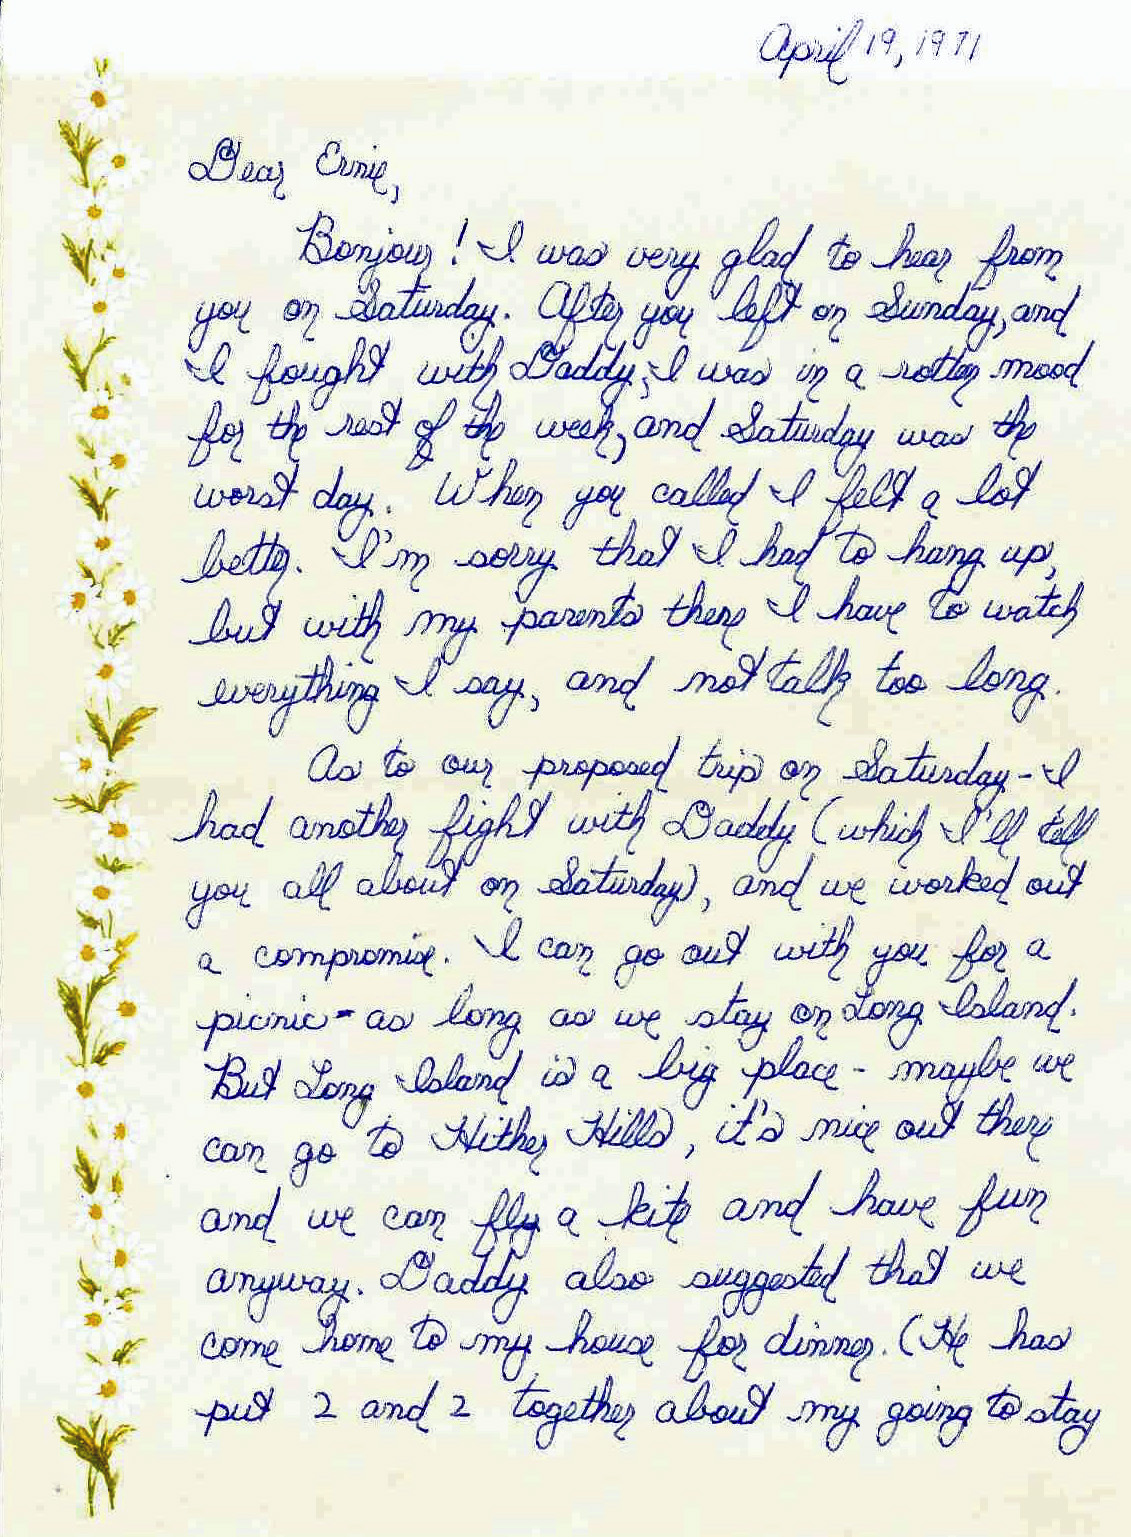 April 19, 1971
Dear Ernie,
Bonjour! I was very glad to hear from
you on Saturday. After you left on Sunday, and
I fought with Daddy, I was in a rotten mood
for the rest of the week, and Saturday was the
worst day. When you called I felt a lot
better. I'm sorry that I had to hang up,
but with my parents there I have to watch
everything I say, and not talk too long.
As to our proposed trip on Saturday - I
had another fight with Daddy (which I'll tell
you all about on Saturday), and we worked out
a compromise. I can go out with you for a
picnic - as long as we stay on Long Island.
But Long Island is a big place - maybe we
can go to Hither Hills, it's nice out there
and we can fly a kite and have fun
anyway. Daddy also suggested that we
come home to my house for dinner. (He has
put 2 and 2 together about my going to stay